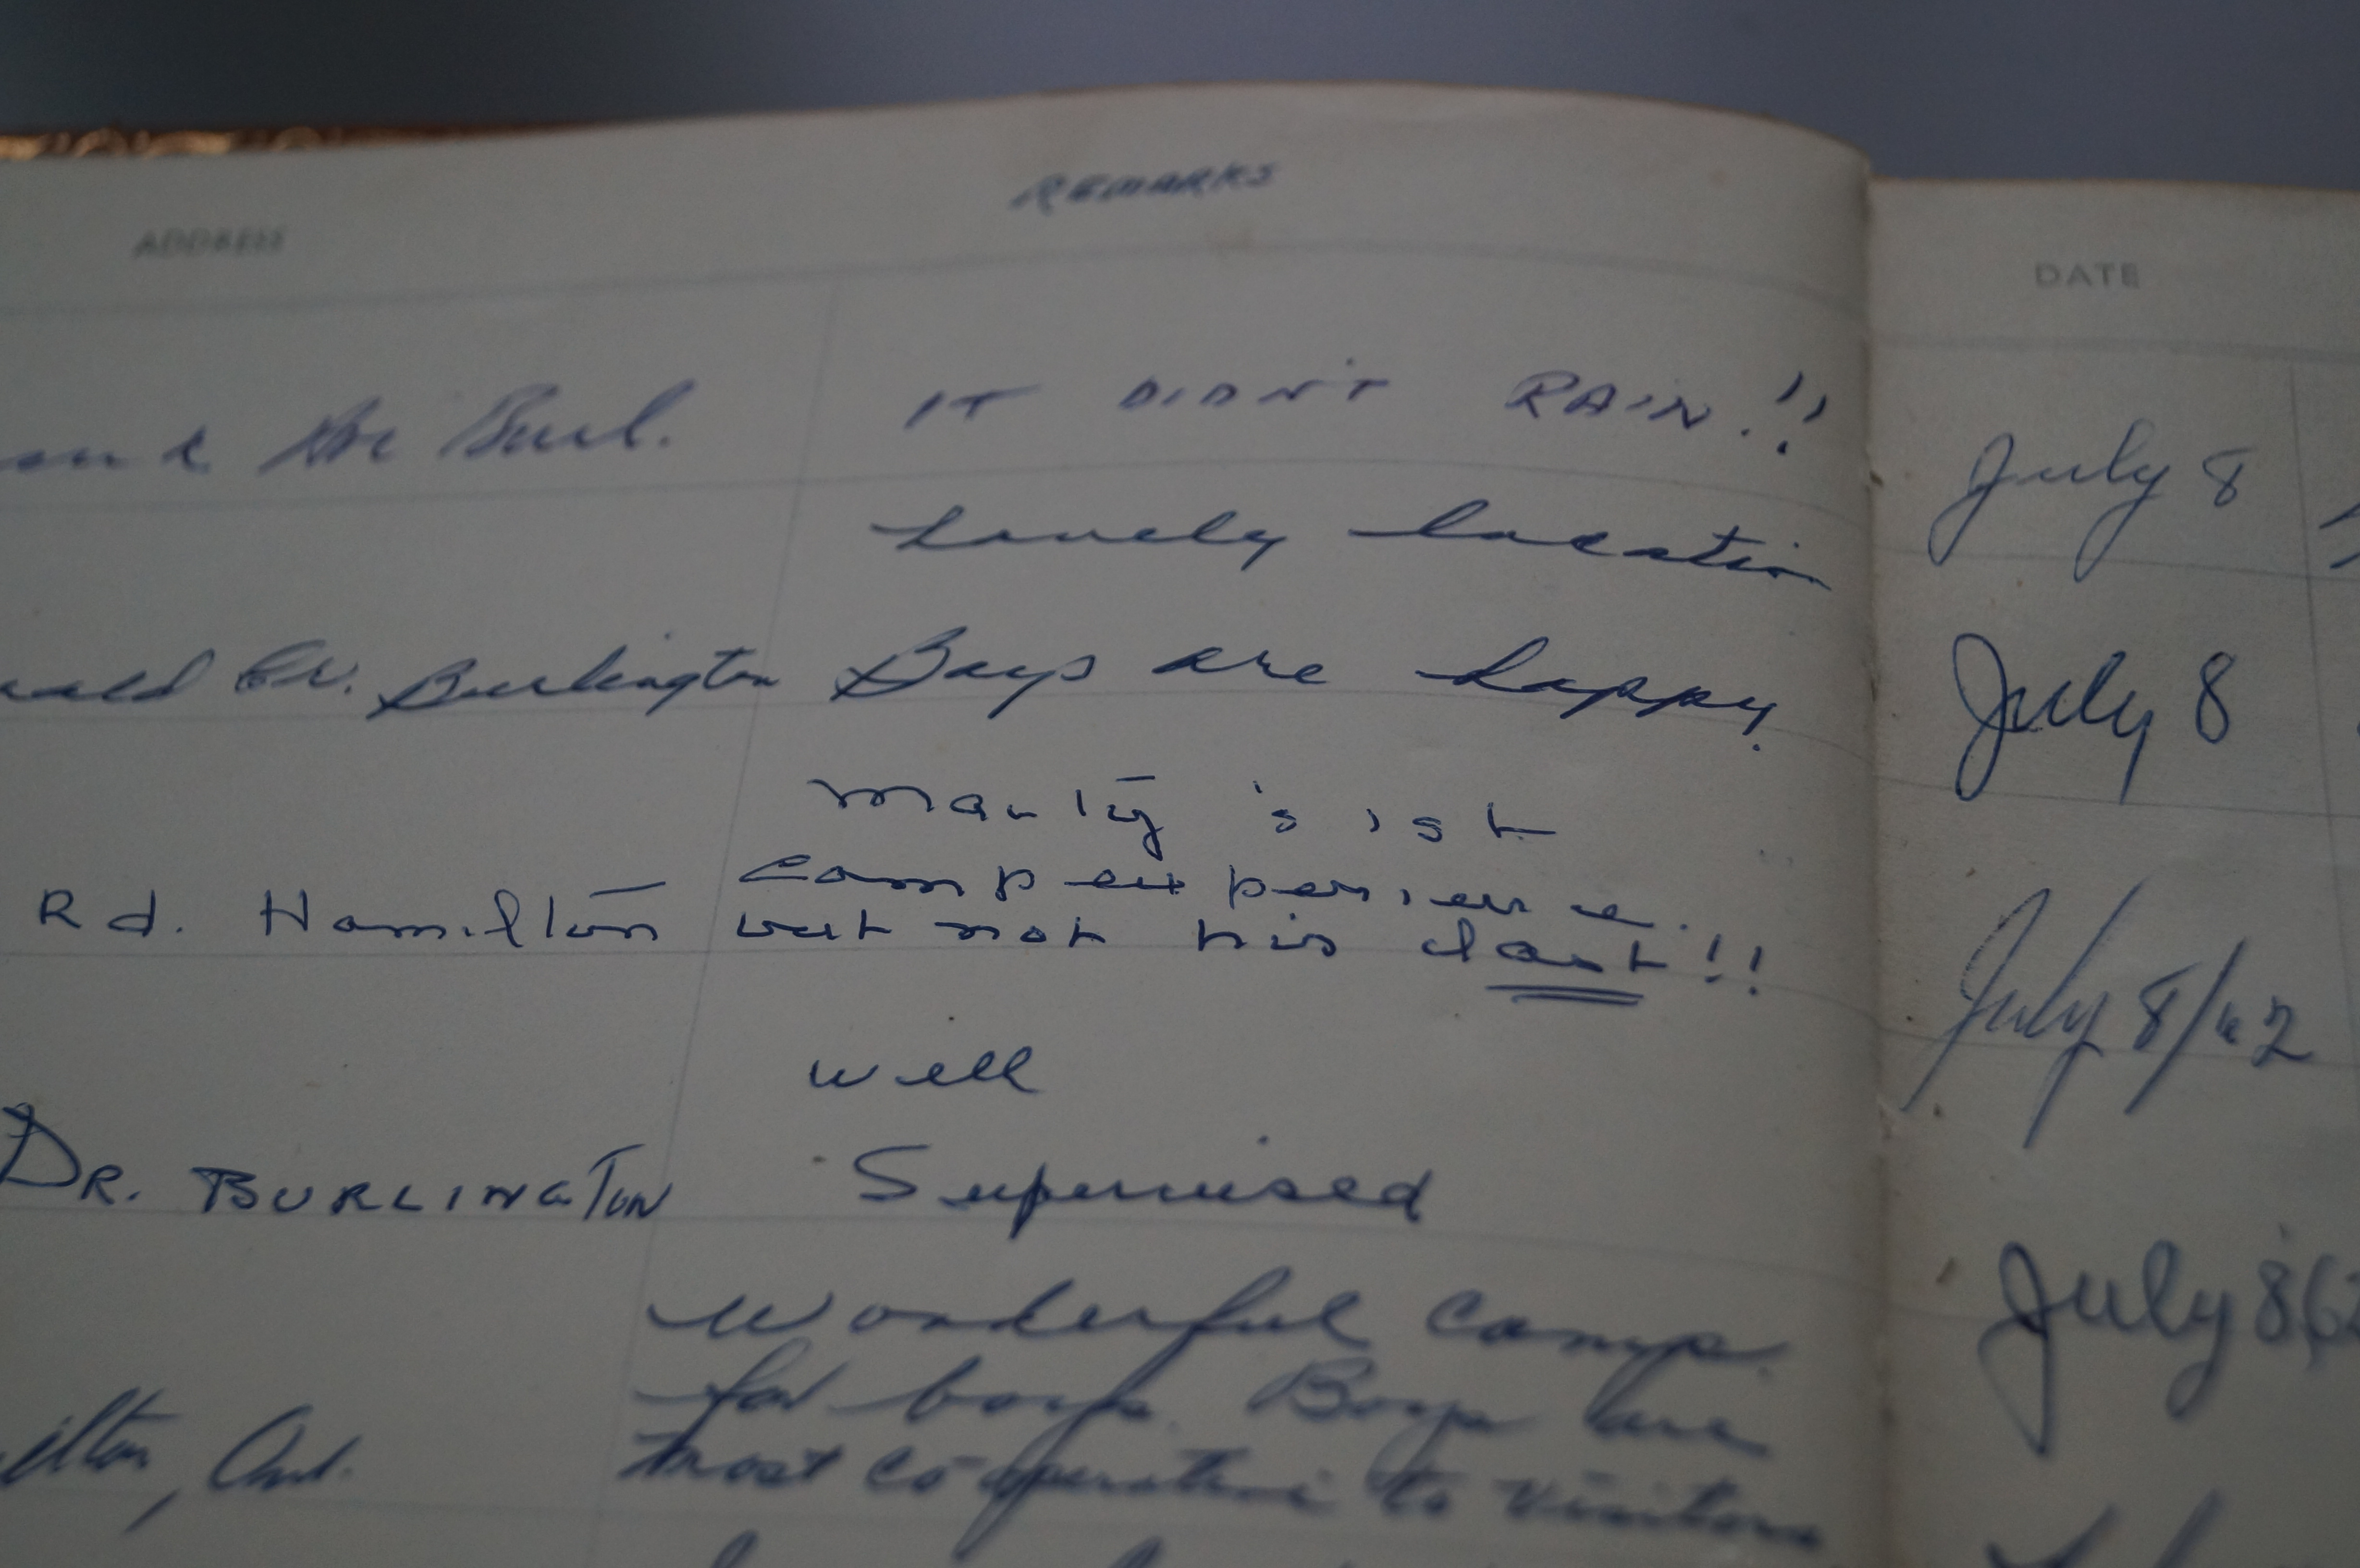 ADDRESS REMARKS
IT DIDN'T RAIN.!!
Burl.
Lovely location
Cr. Burlington Boys are happy.
Marty's 1st
camp experience.
Rd. Hamilton but not his last!!
well
DR. BURLINGTON Supervised
Wonderful camp.
for boys. Boys are
Ont. most co-operative to visitors
DATE
July 8
July 8
July 8/62
July 8,62